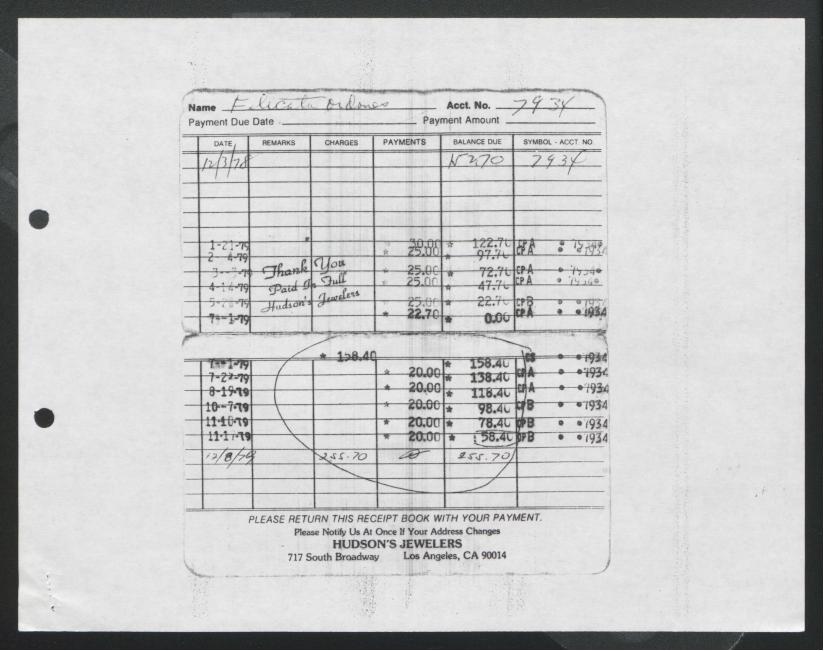 Name Felicata Ordones Acct. No. 7934
Payment Due Date Payment Amount
DATE REMARKS CHARGES PAYMENTS BALANCE DUE SYMBOL - ACCT NO.
12/3/78 7934
1-21-79 30.00 * 122.70 CPA
2-4-79 * 25.00 97.70 CPA
79 * 25.00 * 72.70 CPA
4-14-79 * 25.00 47.70 CPA
79 25.00 22.70 CPB
7-1-79 * 22.70 * 0.00 CPA 1934
Thank You
Paid In Full
Hudson's Jewelers
* 158.40
7-1-79 * 158.40 1934
7-22-79 * 20.00 * 138.40 CPA 1934
8-19-79 * 20.00 * 118.40 CPA 1934
10-7-79 * 20.00 * 98.40 CPB 1934
11-10-79 * 20.00 * 78.40 CPB 1934
11-17-79 * 20.00 * 58.40 CPB 1934
12/8/79 255.70 255.70
PLEASE RETURN THIS RECEIPT BOOK WITH YOUR PAYMENT.
Please Notify Us At Once If Your Address Changes
HUDSON'S JEWELERS
717 South Broadway Los Angeles, CA 90014